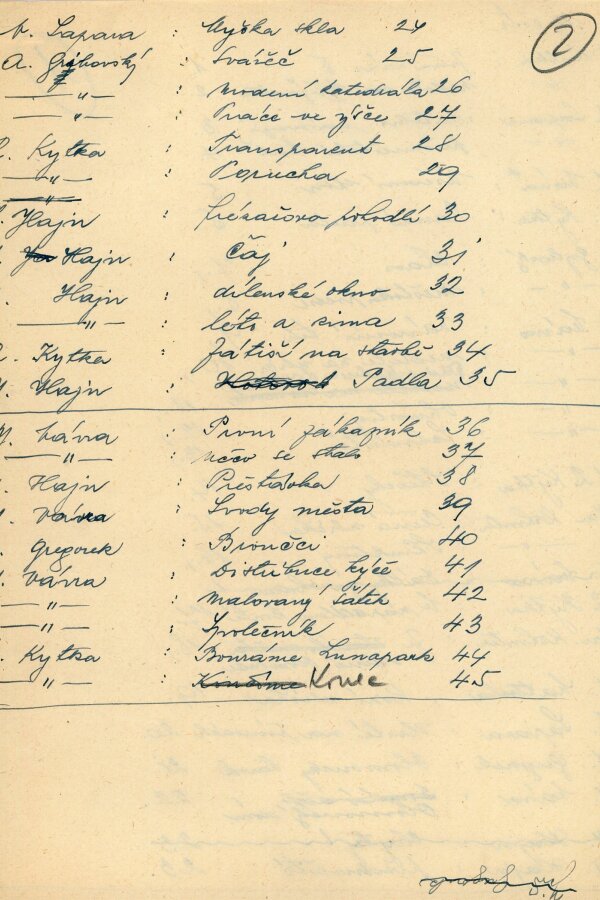 2
V. Lapara : Myška skla 24
A. Gribovský : Svářeč 25
— " — : moderní katedrála 26
— " — : Práce ve výšce 27
Kytka : Transparent 28
— " — : Porucha 29
Hajn : frézařovo pohodlí 30
Hajn : čaj 31
Hajn : dílenské okno 32
— " — : léto a zima 33
Kytka : Zátiší na stavbě 34
Hajn : Padla 35
Vávra : První zákazník 36
— " — : něco se stalo 37
Hajn : Přestávka 38
Vávra : Svody města 39
Gregorek : Broučci 40
Vávra : Distribuce kýče 41
— " — : malovaný šátek 42
— " — : Společník 43
Kytka : Bouráme Lunapark 44
— " — : Konec 45